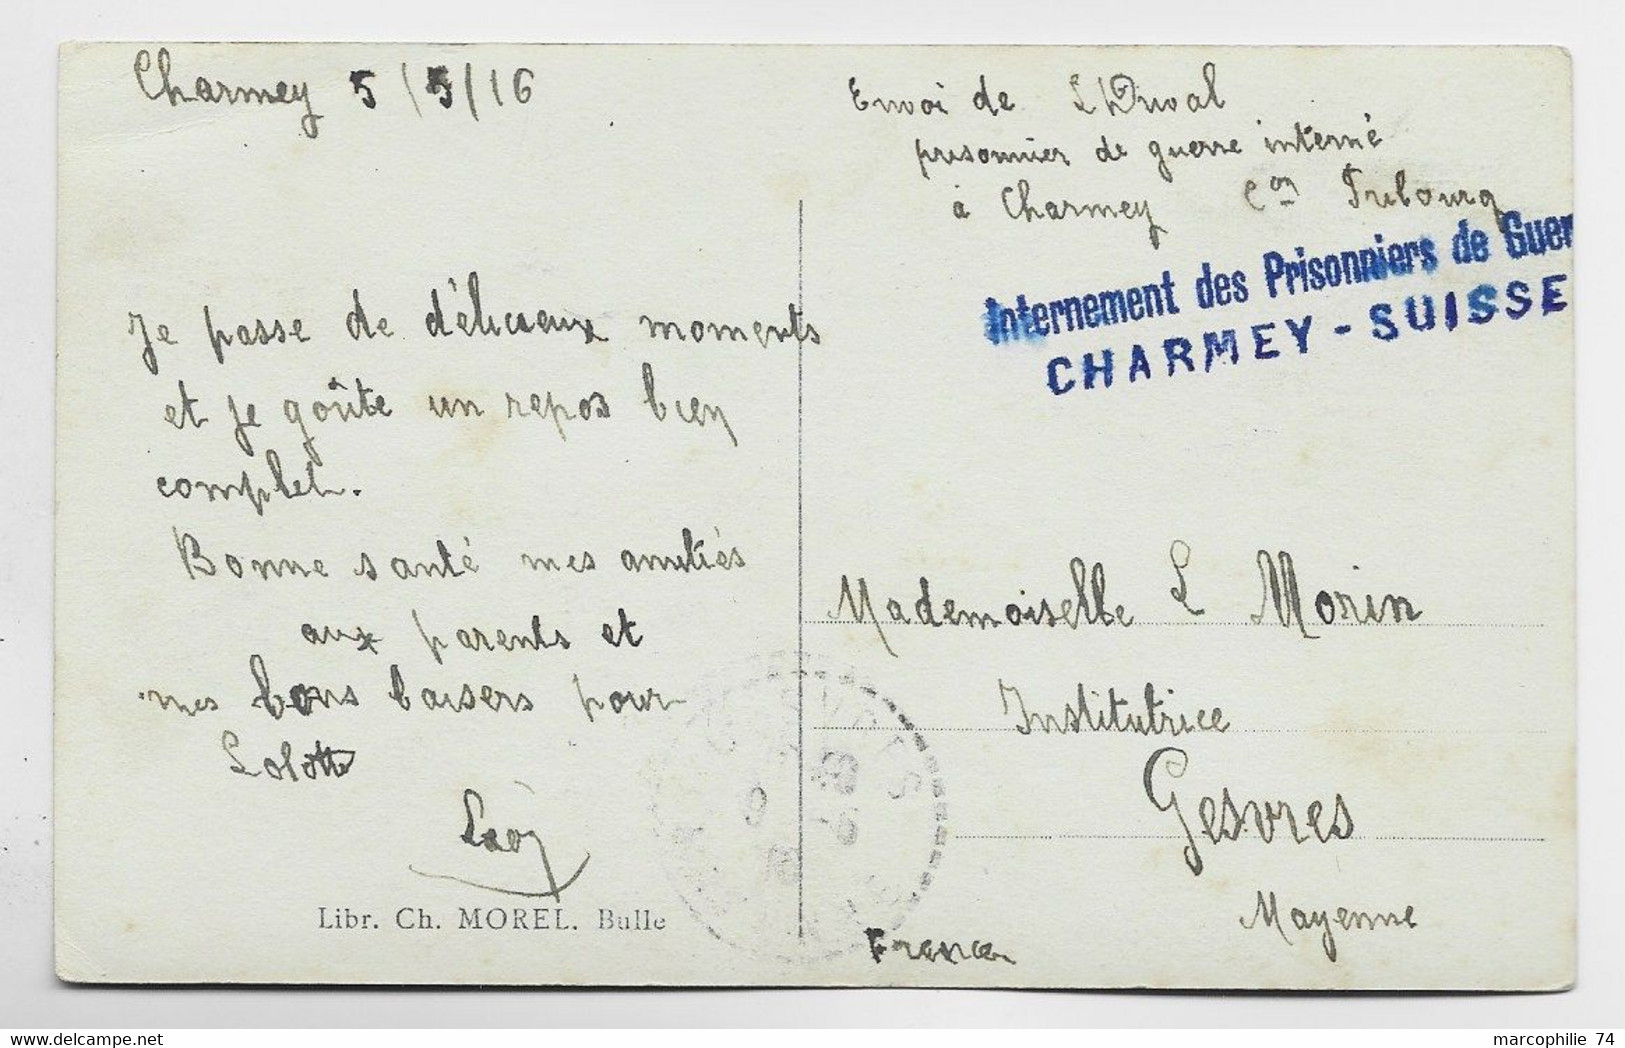 Charmey 5/5/16
Je passe de délicieux moments
et je goûte un repos bien
complet.
Bonne santé mes amitiés
aux parents et
mes bons baisers pour
Lolotte
Léon
Libr. Ch. MOREL. Bulle
Envoi de L Duval
prisonnier de guerre interné
à Charmey Con Fribourg
Internement des Prisonniers de Guer
CHARMEY - SUISSE
Mademoiselle L Morin
Institutrice
Gesvres
Mayenne
France
GESVRES
marcophilie 74